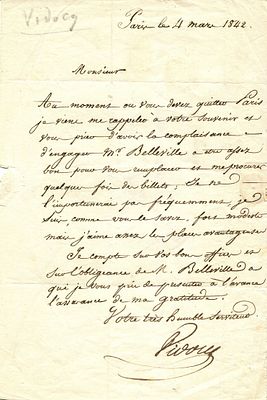 Vidocq
Paris le 4 mars 1842.
Monsieur
Au moment ou vous devez quitter Paris
je viens me rappeler à votre souvenir et
vous prier d'avoir la complaisance
d'engager Mr. Belleville a etre assez
bon pour vous remplacer et me procurer
quelque fois des billets; Je ne
l'importunerai pas fréquemment, je
suis, comme vous le savez, fort modeste
mais j'aime assez les places avantageuses
Je compte sur vos bons offices et
sur l'obligeance de M. Belleville a
qui je vous prie de présenter à l'avance
l'assurance de ma gratitude.
Votre très humble Serviteur
Vidocq